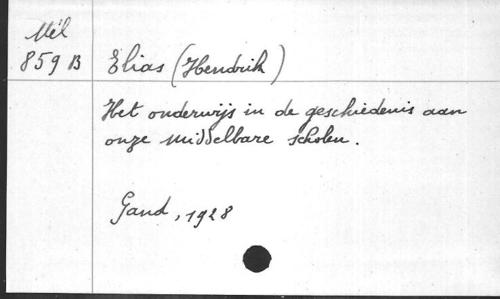 Mél
859 B Elias (Hendrik)
Het onderwijs in de geschiedenis aan
onze middelbare scholen.
Gand, 1928